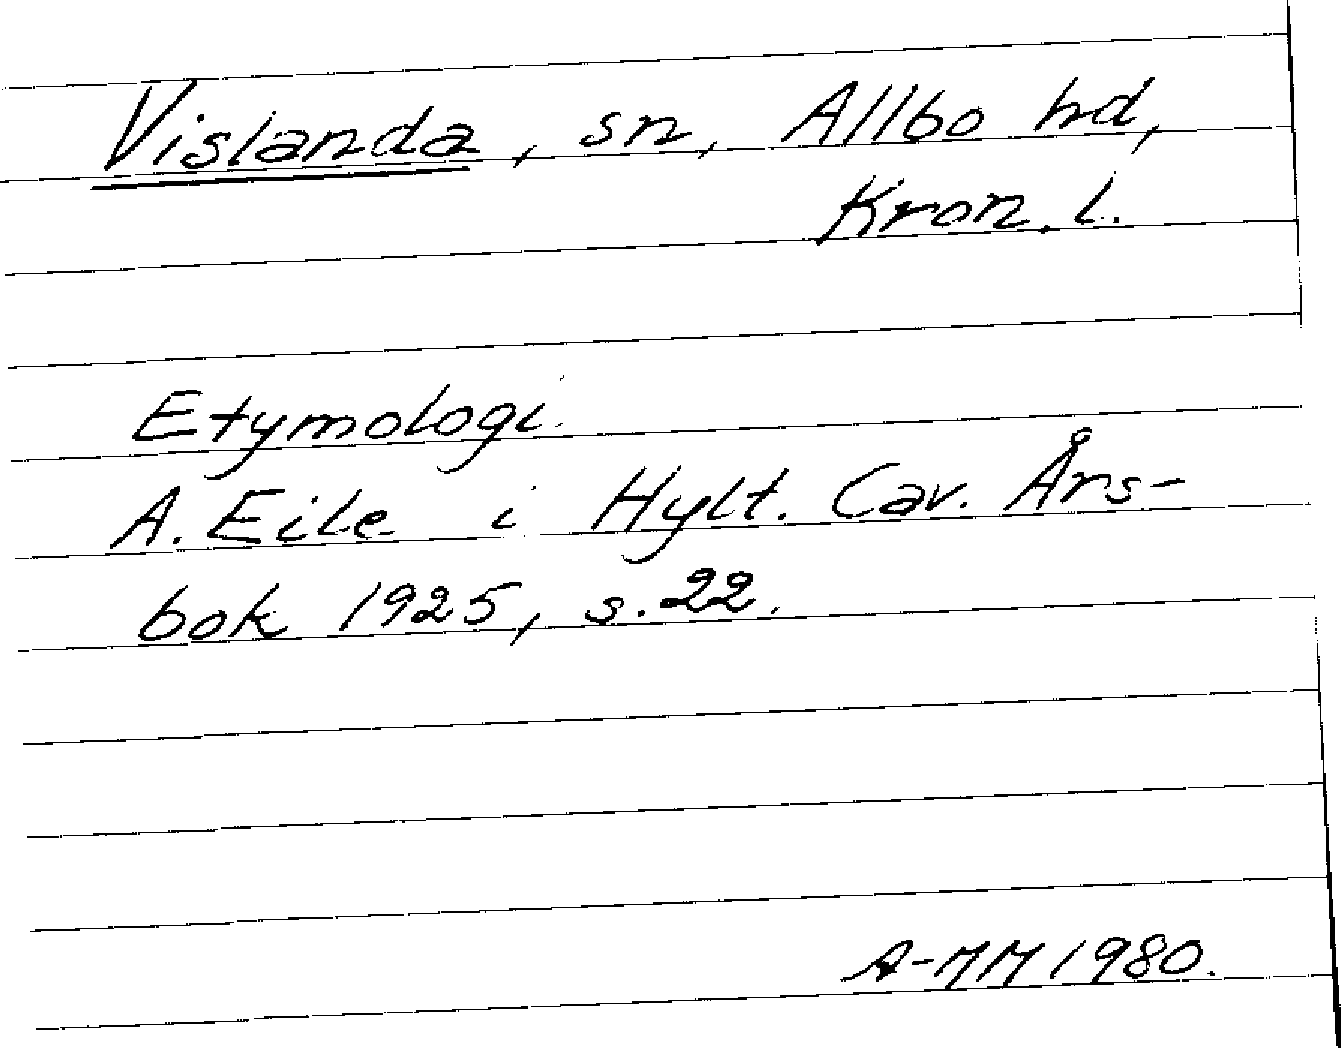 Vislanda, sn, Allbo hd,
Kron. l.
Etymologi.
A. Eile i Hylt. Cav. Års-
bok 1925, s. 22.
A-MM 1980.